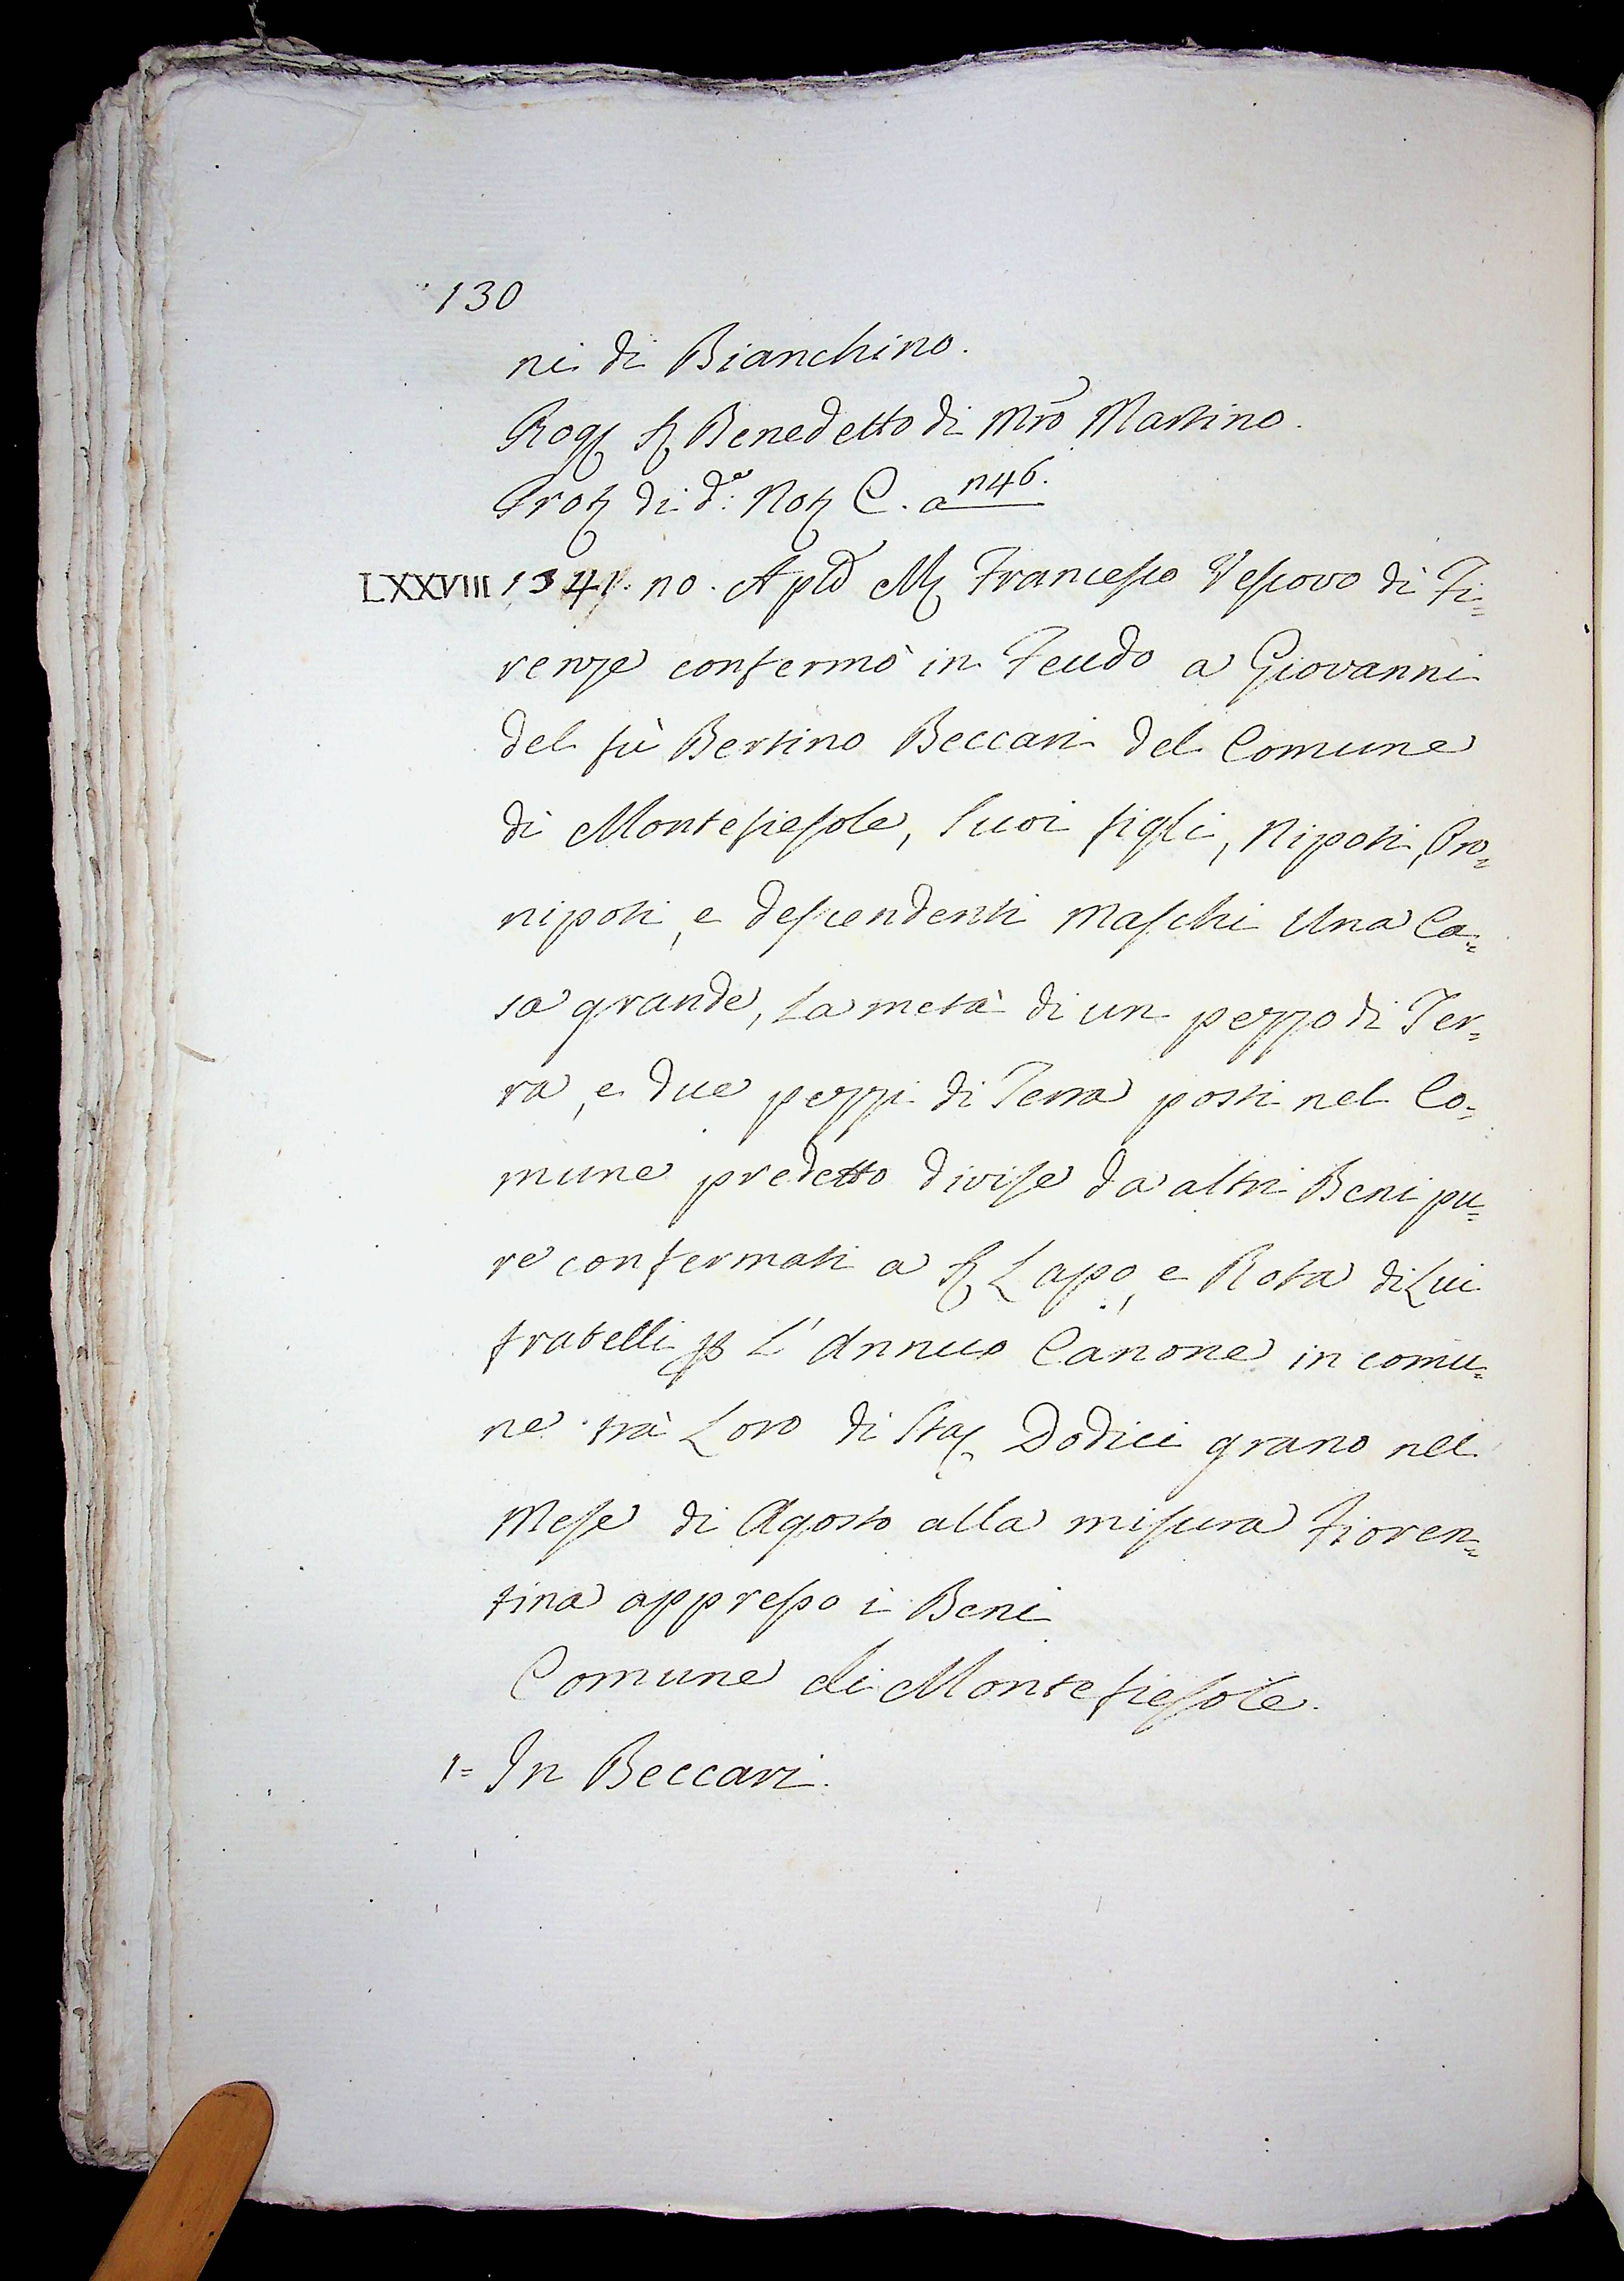 130
ni di Bianchino.
Rog. S. Benedetto di Mro Martino.
Prot. di d.o Not. C. a n46.
LXXVIII 1341. 10. Aple M. Francesco Vescovo di Fi=
renze confermò in Feudo a Giovanni
del fù Bertino Beccari del Comune
di Montefiesole, Suoi figli, Nipoti, Pro=
nipoti, e descendenti Maschi Una Ca=
sa grande, La metà di un pezzo di Ter=
ra, e due pezzi di Terra posti nel Co=
mune predetto divise da altri Beni pu=
re confermati a S. Lapo, e Rota di Lui
fratelli p L'Annuo Canone in comu=
ne trà Loro di Sta. Dodici grano nel
Mese di Agosto alla misura Fioren=
tina appresso i Beni
Comune di Montefiesole.
1= In Beccari.